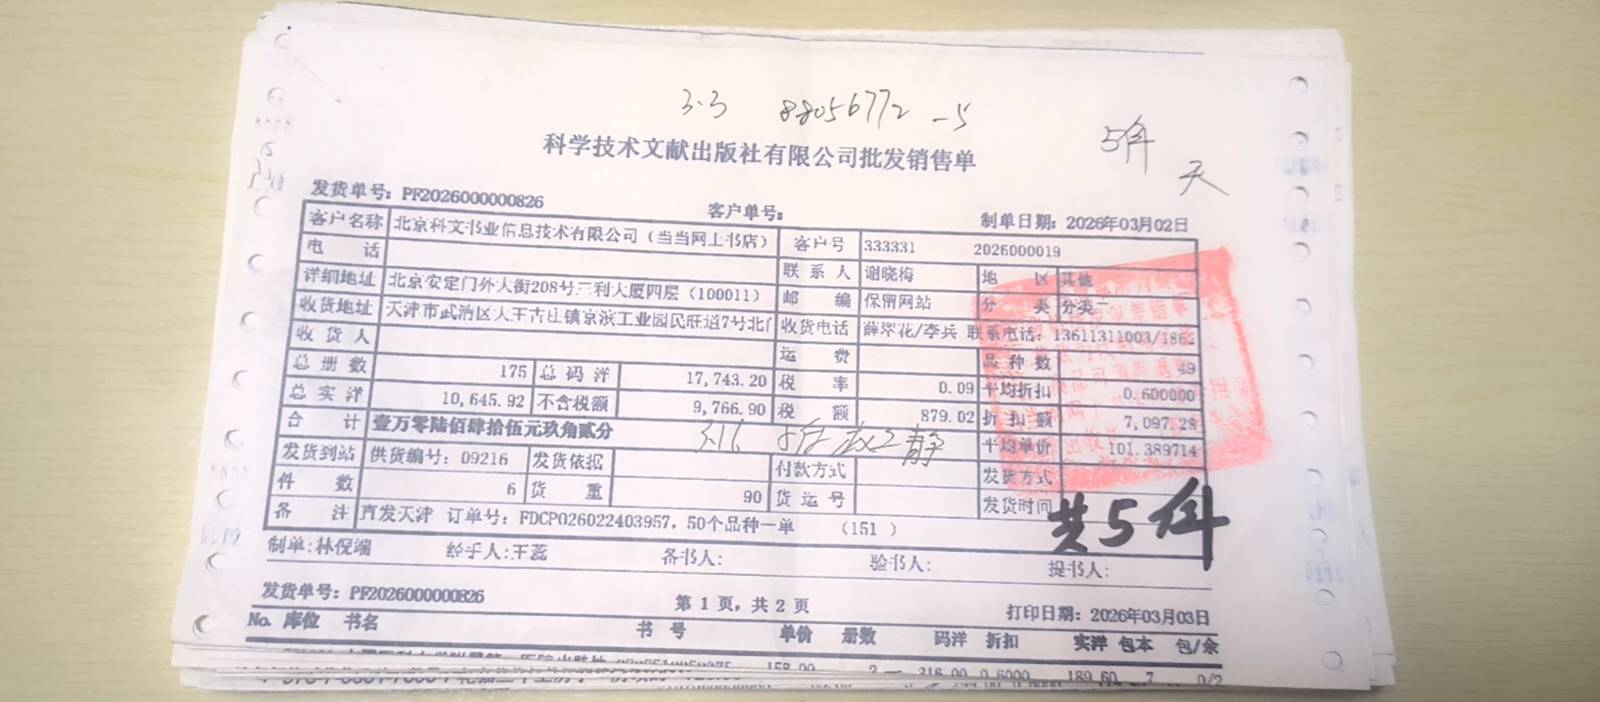 3.3 88056772 -5
5件
天
科学技术文献出版社有限公司批发销售单
发货单号: PF2026000000826 客户单号: 制单日期: 2026年03月02日
客户名称 北京科文书业信息技术有限公司（当当网上书店） 客户号 333331 2026000019
电 话 联系人 谢晓梅 地 区 其他
详细地址 北京安定门外大街208号三利大厦四层（100011） 邮 编 保留网站 分 类 分类一
收货地址 天津市武清区大王古庄镇京滨工业园民旺道7号北门 收货电话 薛翠花/李兵 联系电话: 13611311003/1862
收货人 运 费 品种数 49
总册数 175 总码洋 17,743.20 税 率 0.09 平均折扣 0.600000
总实洋 10,645.92 不含税额 9,766.90 税 额 879.02 折扣额 7,097.28
合 计 壹万零陆佰肆拾伍元玖角贰分 平均单价 101.389714
发货到站 供货编号: 09216 发货依据 付款方式 发货方式
件 数 6 货 重 90 货运号 发货时间
共5件
备 注 直发天津 订单号: FDCP026022403957, 50个品种一单 （151 ）
制单:林倪端 经手人:王蕊 备书人: 验书人: 提书人:
发货单号: PF2026000000826 第 1 页, 共 2 页 打印日期: 2026年03月03日
No. 库位 书名 书 号 单价 册数 码洋 折扣 实洋 包本 包/余
158.00 2 316.00 0.6000 189.60 7 0/2